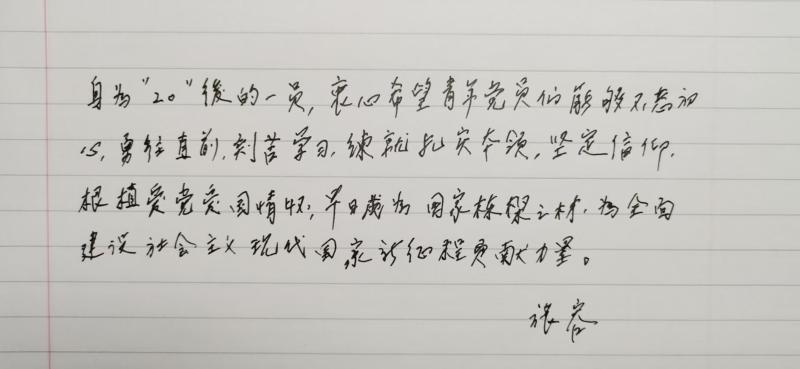 身为“20”後的一员，衷心希望青年党员们能够不忘初
心，勇往直前，刻苦学习，练就扎实本领，坚定信仰，
根植爱党爱国情怀，早日成为国家栋梁之材，为全面
建设社会主义现代国家新征程贡献力量。
张容